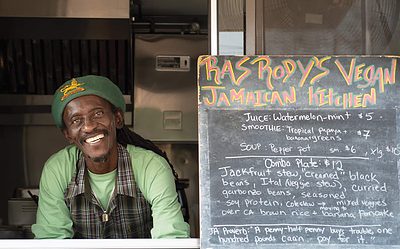 RAS RODY'S VEGAN
JAMAICAN KITCHEN
JUICE: Watermelon-mint $5
SMOOTHIE: Tropical Papaya + $7
banana+greens
SOUP: Pepper pot sm $6 xlg $10
Combo Plate: $12
Jackfruit stew, "creamed" black
beans, Ital Veggie stew, curried
garbonzo beans, seasoned
soy protein, Coleslaw + mixed Veggies
over CA brown rice + banana Pancake
JA Proverb: A penny-half penny buys trouble, one
hundred pounds caan pay for it.